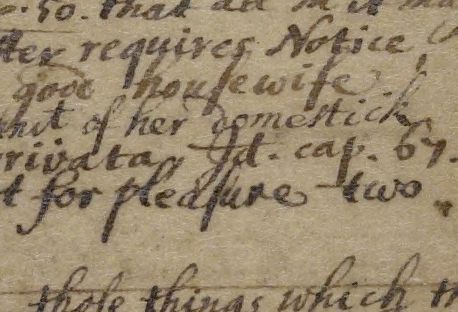 50. that all in it
requires Notice
good housewife
of her domestick
rivata, Id. cap. 67.
t for pleasure two
those things which